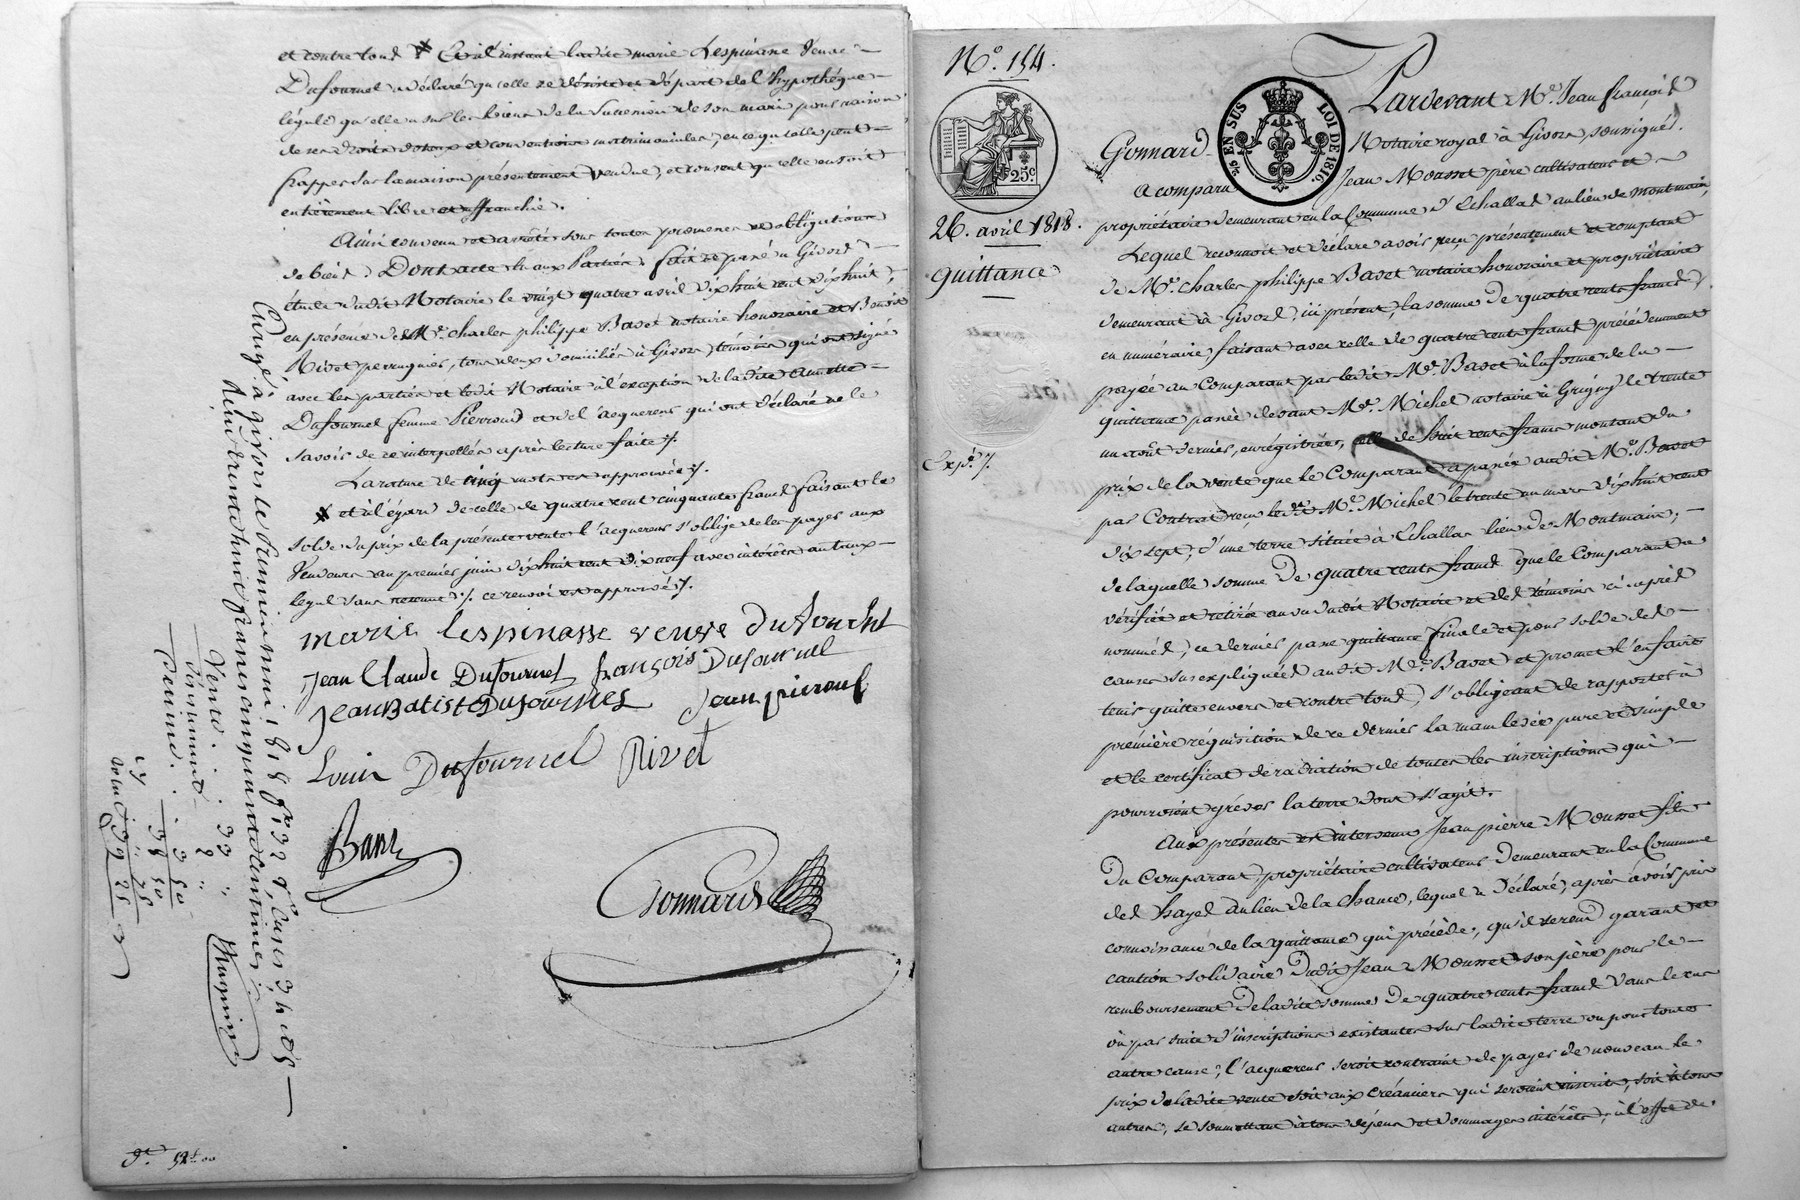 et contre tous * Et à l'instant ladite marie Lespinasse veuve
Dufournel a déclaré qu'elle se désiste et départ de l'hypothéque
légale qu'elle a sur les biens de la succession de son mari pour raison
de ses droits dotaux et conventions matrimoniales, en ce qu'elle peut
frapper sur la maison présentement vendue, et consent qu'elle en soit
entièrement libre et affranchie.
Ainsi convenu et arrêté sous toutes promesses et obligations
de biens, Dont acte a aux Parties, fait et passé à Givors
étude dudit Notaire le vingt quatre avril dix huit cent dix huit,
en présence de Mr. charles philippe Basset notaire honoraire et Benoit
Rivet perruquier, tous deux domiciliés à Givors, témoins qui ont signé
avec les parties et ledit Notaire à l'exception de ladite
Dufournel femme Pierroud et de l'acquereur qui ont déclaré ne le
savoir de ce interpellés après lecture faite /.
La rature de cinq mots est approuvée /.
* et à l'égard de celle de quatre cent cinquante francs faisant le
solde du prix de la présente vente l'acquereur s'oblige de les payer aux
vendeurs au premier juin dix huit cent dix neuf avec intérêts au taux
legal sans retenue /. ce renvoi est approuvé /.
marie lespinasse veuve dufournel
jean Claude Dufournel françois Dufournel
jean Batist Dufournel Jean pieroud
Louis Dufournel Rivet
Basset
Gonnard
Enregé. à givors le premier mai 1818 fo. 32 Ro. Cases 3 4 et 5
Reçu trente huit francs cinquante centimes
Vente . . 33 "
3 50
38 50
39 25
52 00
No. 154.
25c
26. avril 1818.
quittance
Expé. /.
25 EN SUS LOI DE 1816.
Pardevant Me. Jean françois
Gonnard Notaire royal à Givors, soussigné.
A comparu Jean Mousset père cultivateur et
propriétaire demeurant en la Commune d'Echallas au lieu de montmain,
Lequel reconnoit et déclare avoir reçu présentement et comptant
de Mr. charles philippe Basset notaire honoraire et propriétaire
demeurant à Givors, ici présent, la somme de quatre cents francs
en numéraire faisant avec celle de quatre cents francs précédemment
payée au Comparant par ledit Mr. Basset à la forme de la
quittance passée devant Me. Michel notaire à Grigny le trente
un aout dernier, enregistrée, celle de huit cents francs montant du
prix de la vente que le Comparant a passée audit Mr. Basset
par Contrat reçu ledit Me. Michel le trente un mars dix huit cent
dix sept, d'une terre située à Echallas lieu de Montmain;
de laquelle somme de quatre cents francs que le Comparant a
vérifiée et retirée au vu dudit Notaire et des témoins ci après
nommés, ce dernier passe quittance finale et pour solde des
causes sus expliquées audit Mr. Basset et promet l'en faire
tenir quitte envers et contre tous, s'obligeant de rapporter à
première réquisition de ce dernier la main levée pure et simple
et le certificat de radiation de toutes les inscriptions qui
pourroient grever la terre dont s'agit.
Aux présentes est intervenu Jean pierre Mousset fils
du Comparant propriétaire cultivateur demeurant en la Commune
des hayes au lieu de la chance, lequel a déclaré, après avoir pris
connoissance de la quittance qui précède, qu'il se rend garant et
caution solidaire dudit Jean Mousset son père pour le
remboursement de ladite somme de quatre cents francs dans le cas
où par suite d'inscriptions existantes sur ladite terre ou pour toute
autre cause, l'acquereur seroit contraint de payer de nouveau le
prix de ladite vente soit aux créanciers qui seroient inscrits, soit à tous
autres, se soumettant à tous dépens et dommages intérêts, à l'effet de